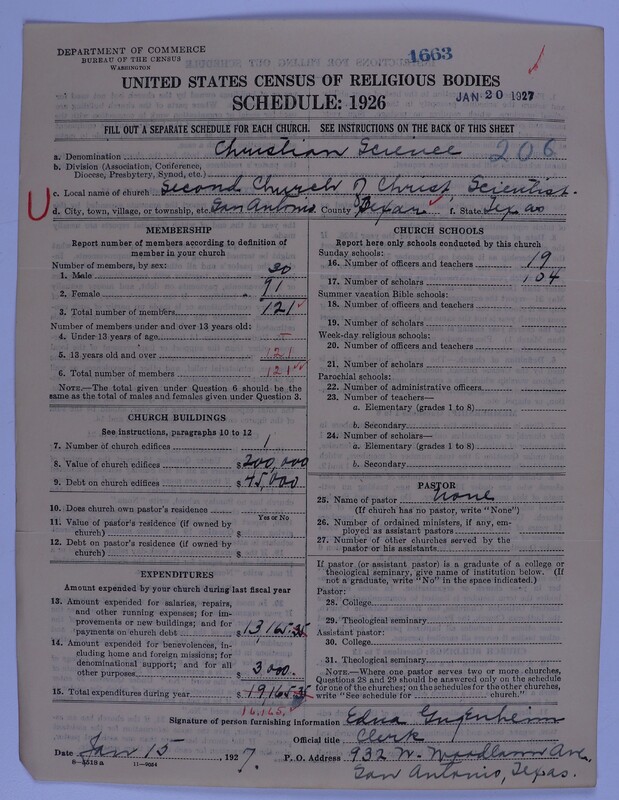 DEPARTMENT OF COMMERCE
BUREAU OF THE CENSUS
WASHINGTON
1663
UNITED STATES CENSUS OF RELIGIOUS BODIES
SCHEDULE: 1926
JAN 20 1927
FILL OUT A SEPARATE SCHEDULE FOR EACH CHURCH. SEE INSTRUCTIONS ON THE BACK OF THIS SHEET
a. Denomination Christian Science 206
b. Division (Association, Conference,
Diocese, Presbytery, Synod, etc.)
c. Local name of church Second Church of Christ, Scientist.
d. City, town, village, or township, etc. San Antonio e. County Bexar f. State Texas
MEMBERSHIP
Report number of members according to definition of
member in your church
Number of members, by sex:
1. Male 30
2. Female 91
3. Total number of members 121
Number of members under and over 13 years old:
4. Under 13 years of age
5. 13 years old and over 121
6. Total number of members 121
NOTE.—The total given under Question 6 should be the
same as the total of males and females given under Question 3.
CHURCH BUILDINGS
See instructions, paragraphs 10 to 12
7. Number of church edifices 1
8. Value of church edifices $200,000
9. Debt on church edifices $75,000
10. Does church own pastor's residence
Yes or No
11. Value of pastor's residence (if owned by
church) $
12. Debt on pastor's residence (if owned by
church) $
EXPENDITURES
Amount expended by your church during last fiscal year
13. Amount expended for salaries, repairs,
and other running expenses; for im-
provements or new buildings; and for
payments on church debt $13,165.35
14. Amount expended for benevolences, in-
cluding home and foreign missions; for
denominational support; and for all
other purposes $3000.
15. Total expenditures during year $19165.35
16,165.
CHURCH SCHOOLS
Report here only schools conducted by this church
Sunday schools:
16. Number of officers and teachers 19
17. Number of scholars 104
Summer vacation Bible schools:
18. Number of officers and teachers
19. Number of scholars
Week-day religious schools:
20. Number of officers and teachers
21. Number of scholars
Parochial schools:
22. Number of administrative officers
23. Number of teachers—
a. Elementary (grades 1 to 8)
b. Secondary
24. Number of scholars—
a. Elementary (grades 1 to 8)
b. Secondary
PASTOR
25. Name of pastor None
(If church has no pastor, write "None")
26. Number of ordained ministers, if any, em-
ployed as assistant pastors
27. Number of other churches served by the
pastor or his assistants
If pastor (or assistant pastor) is a graduate of a college or
theological seminary, give name of institution below. (If
not a graduate, write "No" in the space indicated.)
Pastor:
28. College
29. Theological seminary
Assistant pastor:
30. College
31. Theological seminary
NOTE.—Where one pastor serves two or more churches,
Questions 28 and 29 should be answered only on the schedule
for one of the churches; on the schedules for the other churches,
write "See schedule for church."
Signature of person furnishing information Edna Gugenheim
Official title Clerk
Date Jan 15, 1927. P. O. Address 932 W. Woodlawn Ave,
San Antonio, Texas.
8—5519 a 11—9084